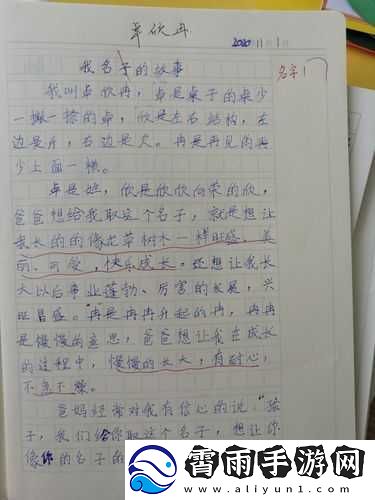 卓欣冉
2020 11月1日
我名子的故事
名字!
我叫卓欣冉，卓是桌子的桌少
一撇一捺的卓，欣是左右结构，左
边是斤，右边是欠。冉是再见的再
少上面一横。
卓是姓，欣是欣欣向荣的欣，
爸爸想给我取这个名子，就是想让
我长的的像花草树木一样旺盛、美
丽、可爱，快乐成长。还想让我长
大以后事业蓬勃、厉害的发展，兴
旺昌盛。冉是冉冉升起的冉，冉冉
是慢慢的意思，爸爸想让我在成长
的过程中，慢慢的长大，有耐心，
不急不躁。
爸妈经常对我有信心的说："孩
子，我们给你取这个名子，想让你
像你的名子的
霄雨手游网
www.aliyun1.com